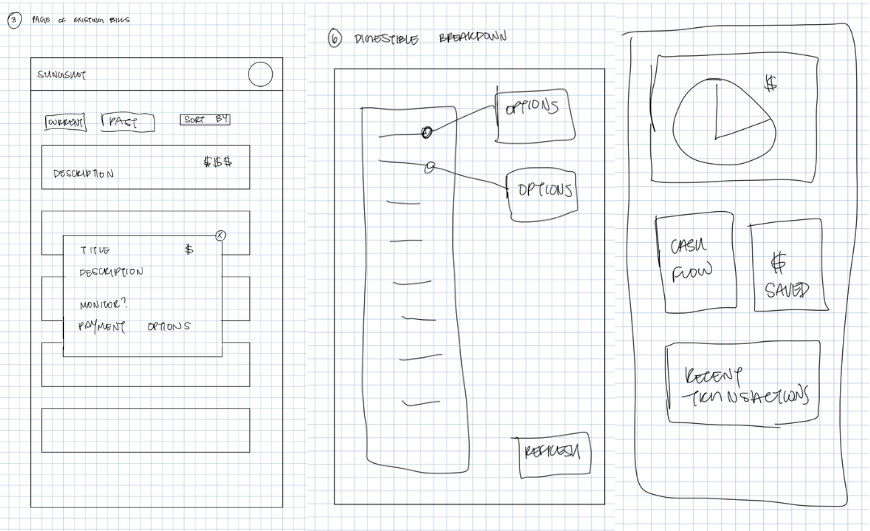 3 PAGE OF EXISTING BILLS
SUNGSHOT
CURRENT PAST SORT BY
$$$
DESCRIPTION
X
TITLE $
DESCRIPTION
MONITOR?
PAYMENT OPTIONS
6 DIGESTIBLE BREAKDOWN
OPTIONS
OPTIONS
REFRESH
$
CASH
FLOW
$
SAVED
RECENT
TRANSACTIONS